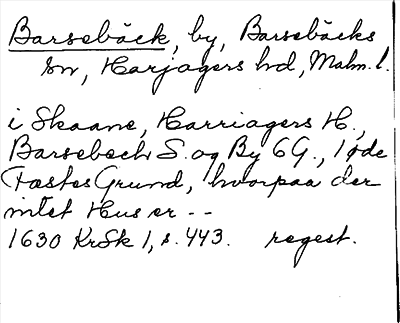 Barsebäck, by, Barsebäcks
sn, Harjagers hd, Malm. l.
i Skaane, Harriagers H.,
Barsebech S. og By 6 G., 1 øde
Fæstes Grund, hvorpaa der
intet Hus er --
1630 KrSk 1, s. 443. regest.